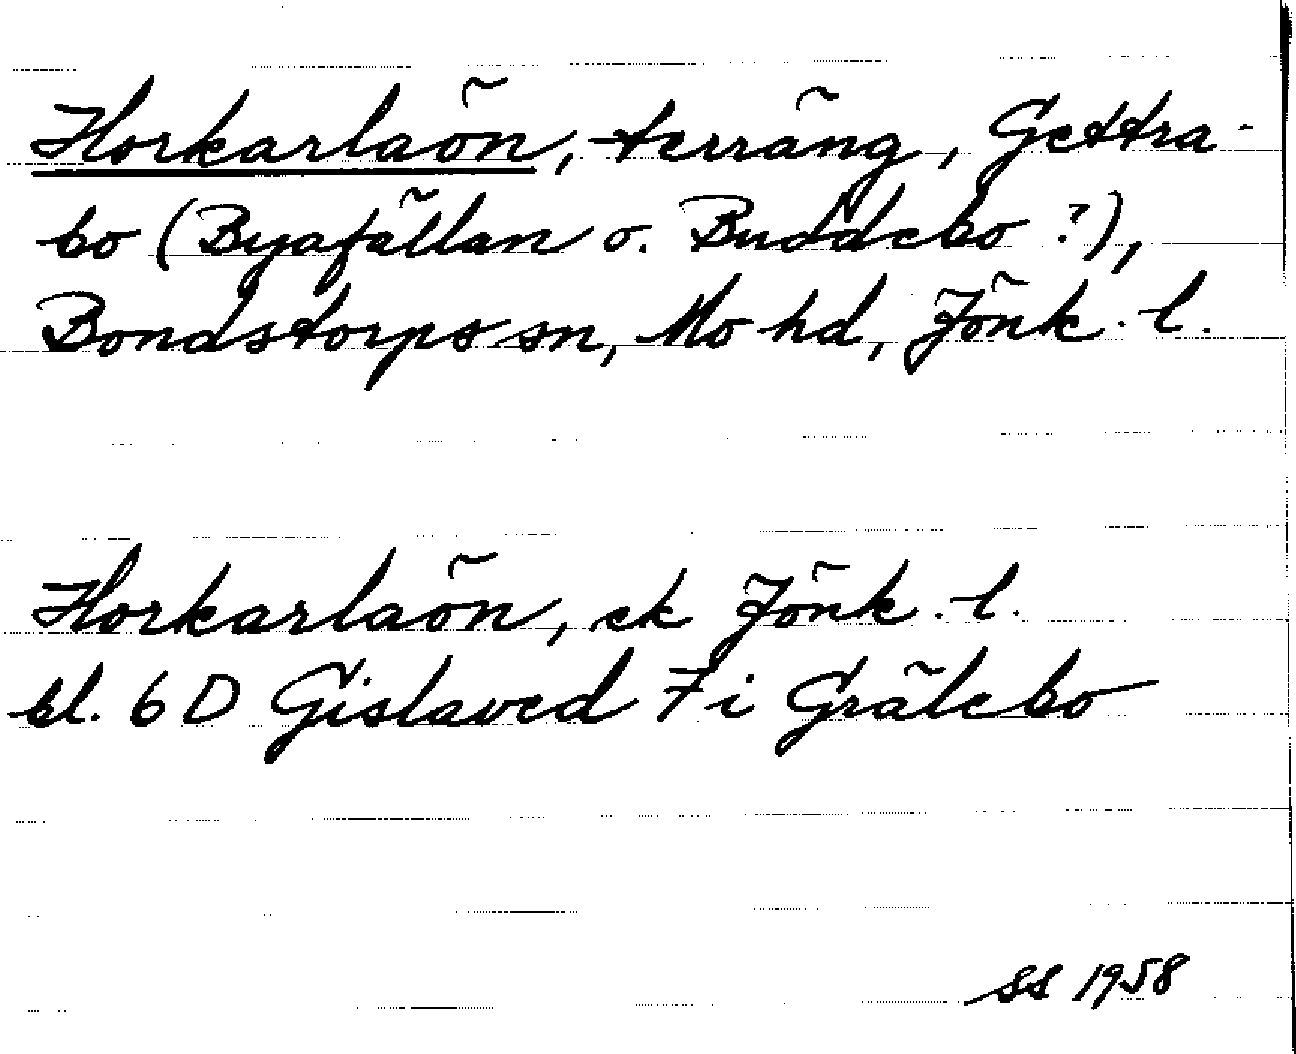 Horkarlaön, terräng, Gettra-
bo (Byafällan o. Buddebo ?),
Bondstorps sn, Mo hd, Jönk. l.
Horkarlaön, ek Jönk. l.
bl. 6 D Gislaved 7 i Grälebo
SS 1958